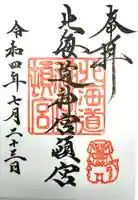 奉拝
北海道神宮頓宮
令和四年七月二十三日
北海道
神宮
頓宮